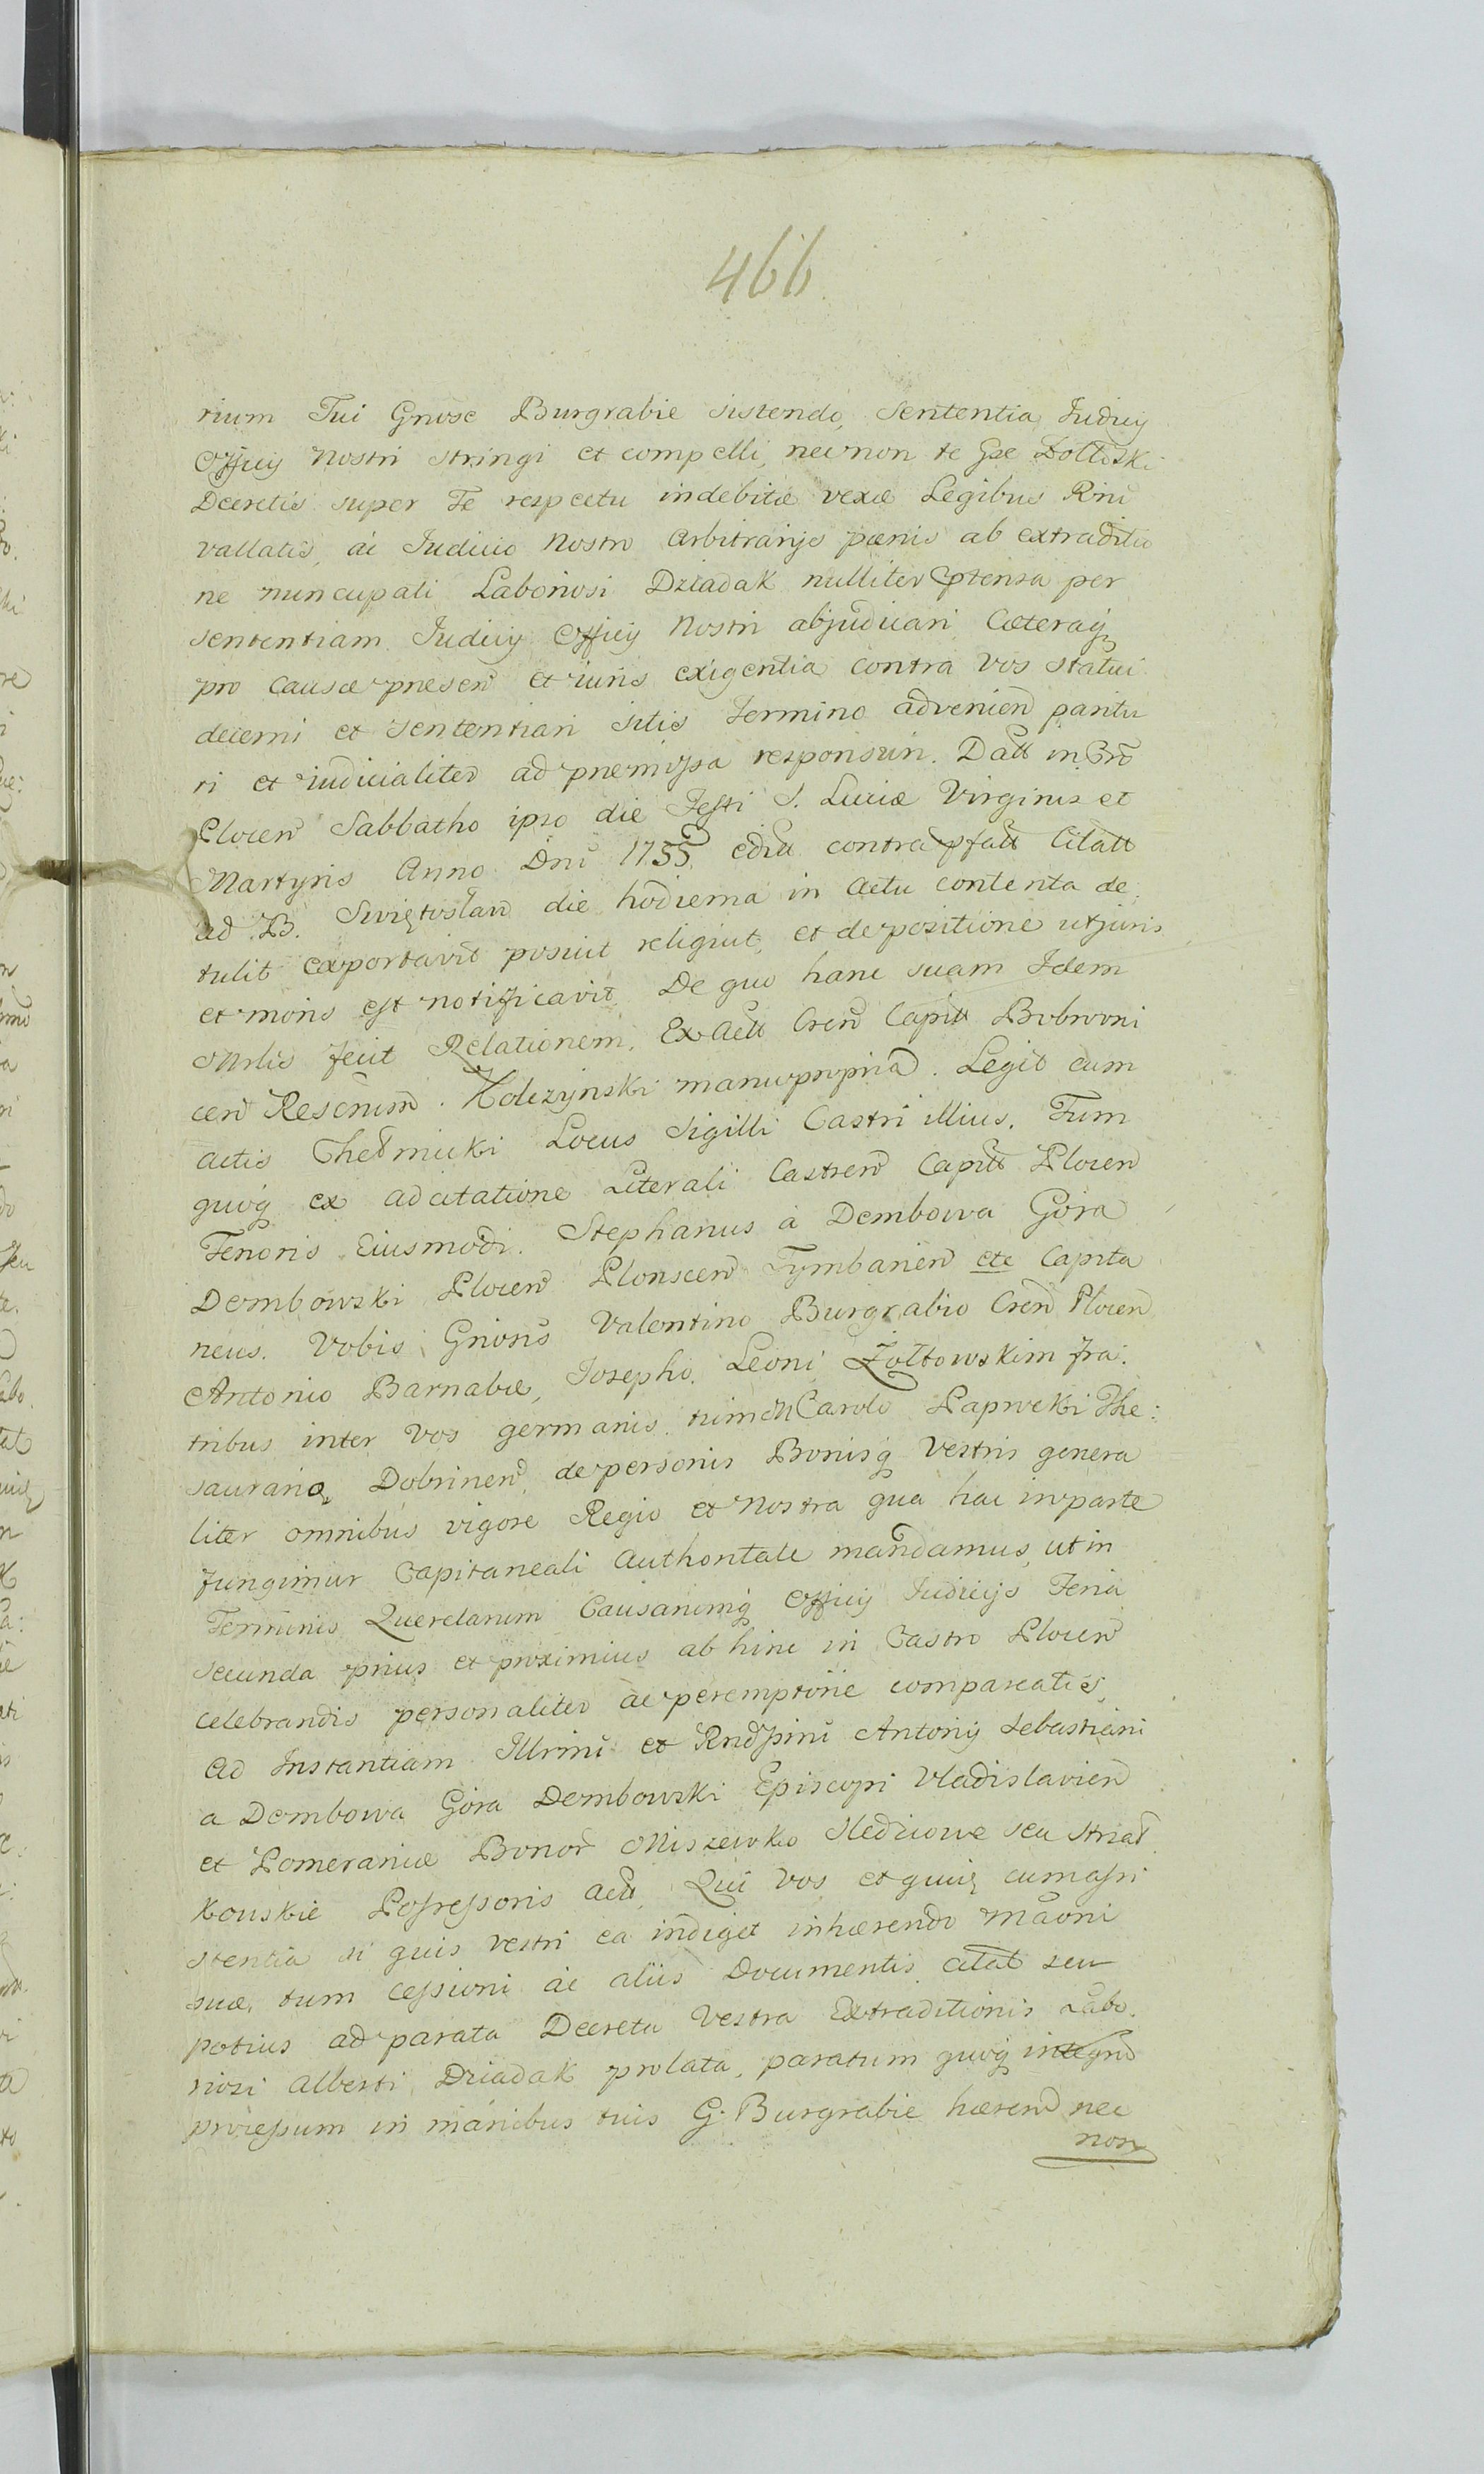 466
rium Tui Gnose Burgrabie sistendo, Sententia Iudicij
Officij Nostri stringi et compelli, nec non te Gse
Decretis super Te respectu indebitæ vexæ Legibus Rni
vallatis, ac Iudicio Nostro Arbitrarijs pænis ab extraditio
ne nuncupati Laboriosi Dziadak nulliter ptensa per
sententiam Iudicij Officij Nostri abjudicari Cæteraq
pro causæ præsen et iuris exigentia contra vos statui
decerni et sententiari sitis Termino advenien paritu
ri et iudicialiter ad præmissa responsuri. Datt in Cro
Plocen Sabbatho ipso die Festi S. Luciæ Virginis et
Martyris Anno Dni 1755 edita contra pfatt Citatt
ad B. Swiętosław die hodierna in Actu contenta de:
tulit exportavit posuit reliquit, et de positione ut juris
et moris est notificavit, De quo hanc suam Idem
Mrlis fecit Relationem. Ex Actt Cren Capitt Bobrovni
cen Rescriptum. Kolczynski manu propria. Legit cum
actis Chełmicki Locus Sigilli Castri illius. Tum
quoq ex adcitatione Literali Castren Capitt Plocen
Tenoris Eiusmodi. Stephanus à Dembowa Góra
Dembowski Plocen Plonscen Tymbarien etc Capita
neus. Vobis Gnosis Valentino Burgrabio Cren Plocen
Antonio Barnabæ, Iosepho, Leoni Zołtowskim fra:
tribus inter vos germanis, tum M Carolo Paprocki The:
saurario Dobrinen, de personis Bonisq Vestris genera
liter omnibus vigore Regio et Nostra qua hac in parte
fungimur Capitaneali Authoritate mandamus, ut in
Terminis Querelarum Causarumq Officij Iudicijs Feria
secunda prius et proximius ab hinc in Castro Plocen
celebrandis personaliter ac peremptorie compareatis,
Ad Instantiam Illrmi et Rndssimi Antonij Sebastiani
a Dembowa Góra Dembowski Episcopi Vladislavien
et Pomeraniæ Bonor Miszewko Stedziowe seu Strzał
kouskie Possessoris Act, Qui vos et quivis cum assi
stentia si quis vestri ea indiget inhærendo Maoni
suæ, tum cessioni ac aliis Documentis, citat seu
potius ad parata Decreta Vestra Extraditionis Labo.
riosi Alberti Dziadak prolata, paratum quoq integrum
processum in manibus tuis G. Burgrabie hæren nec
non